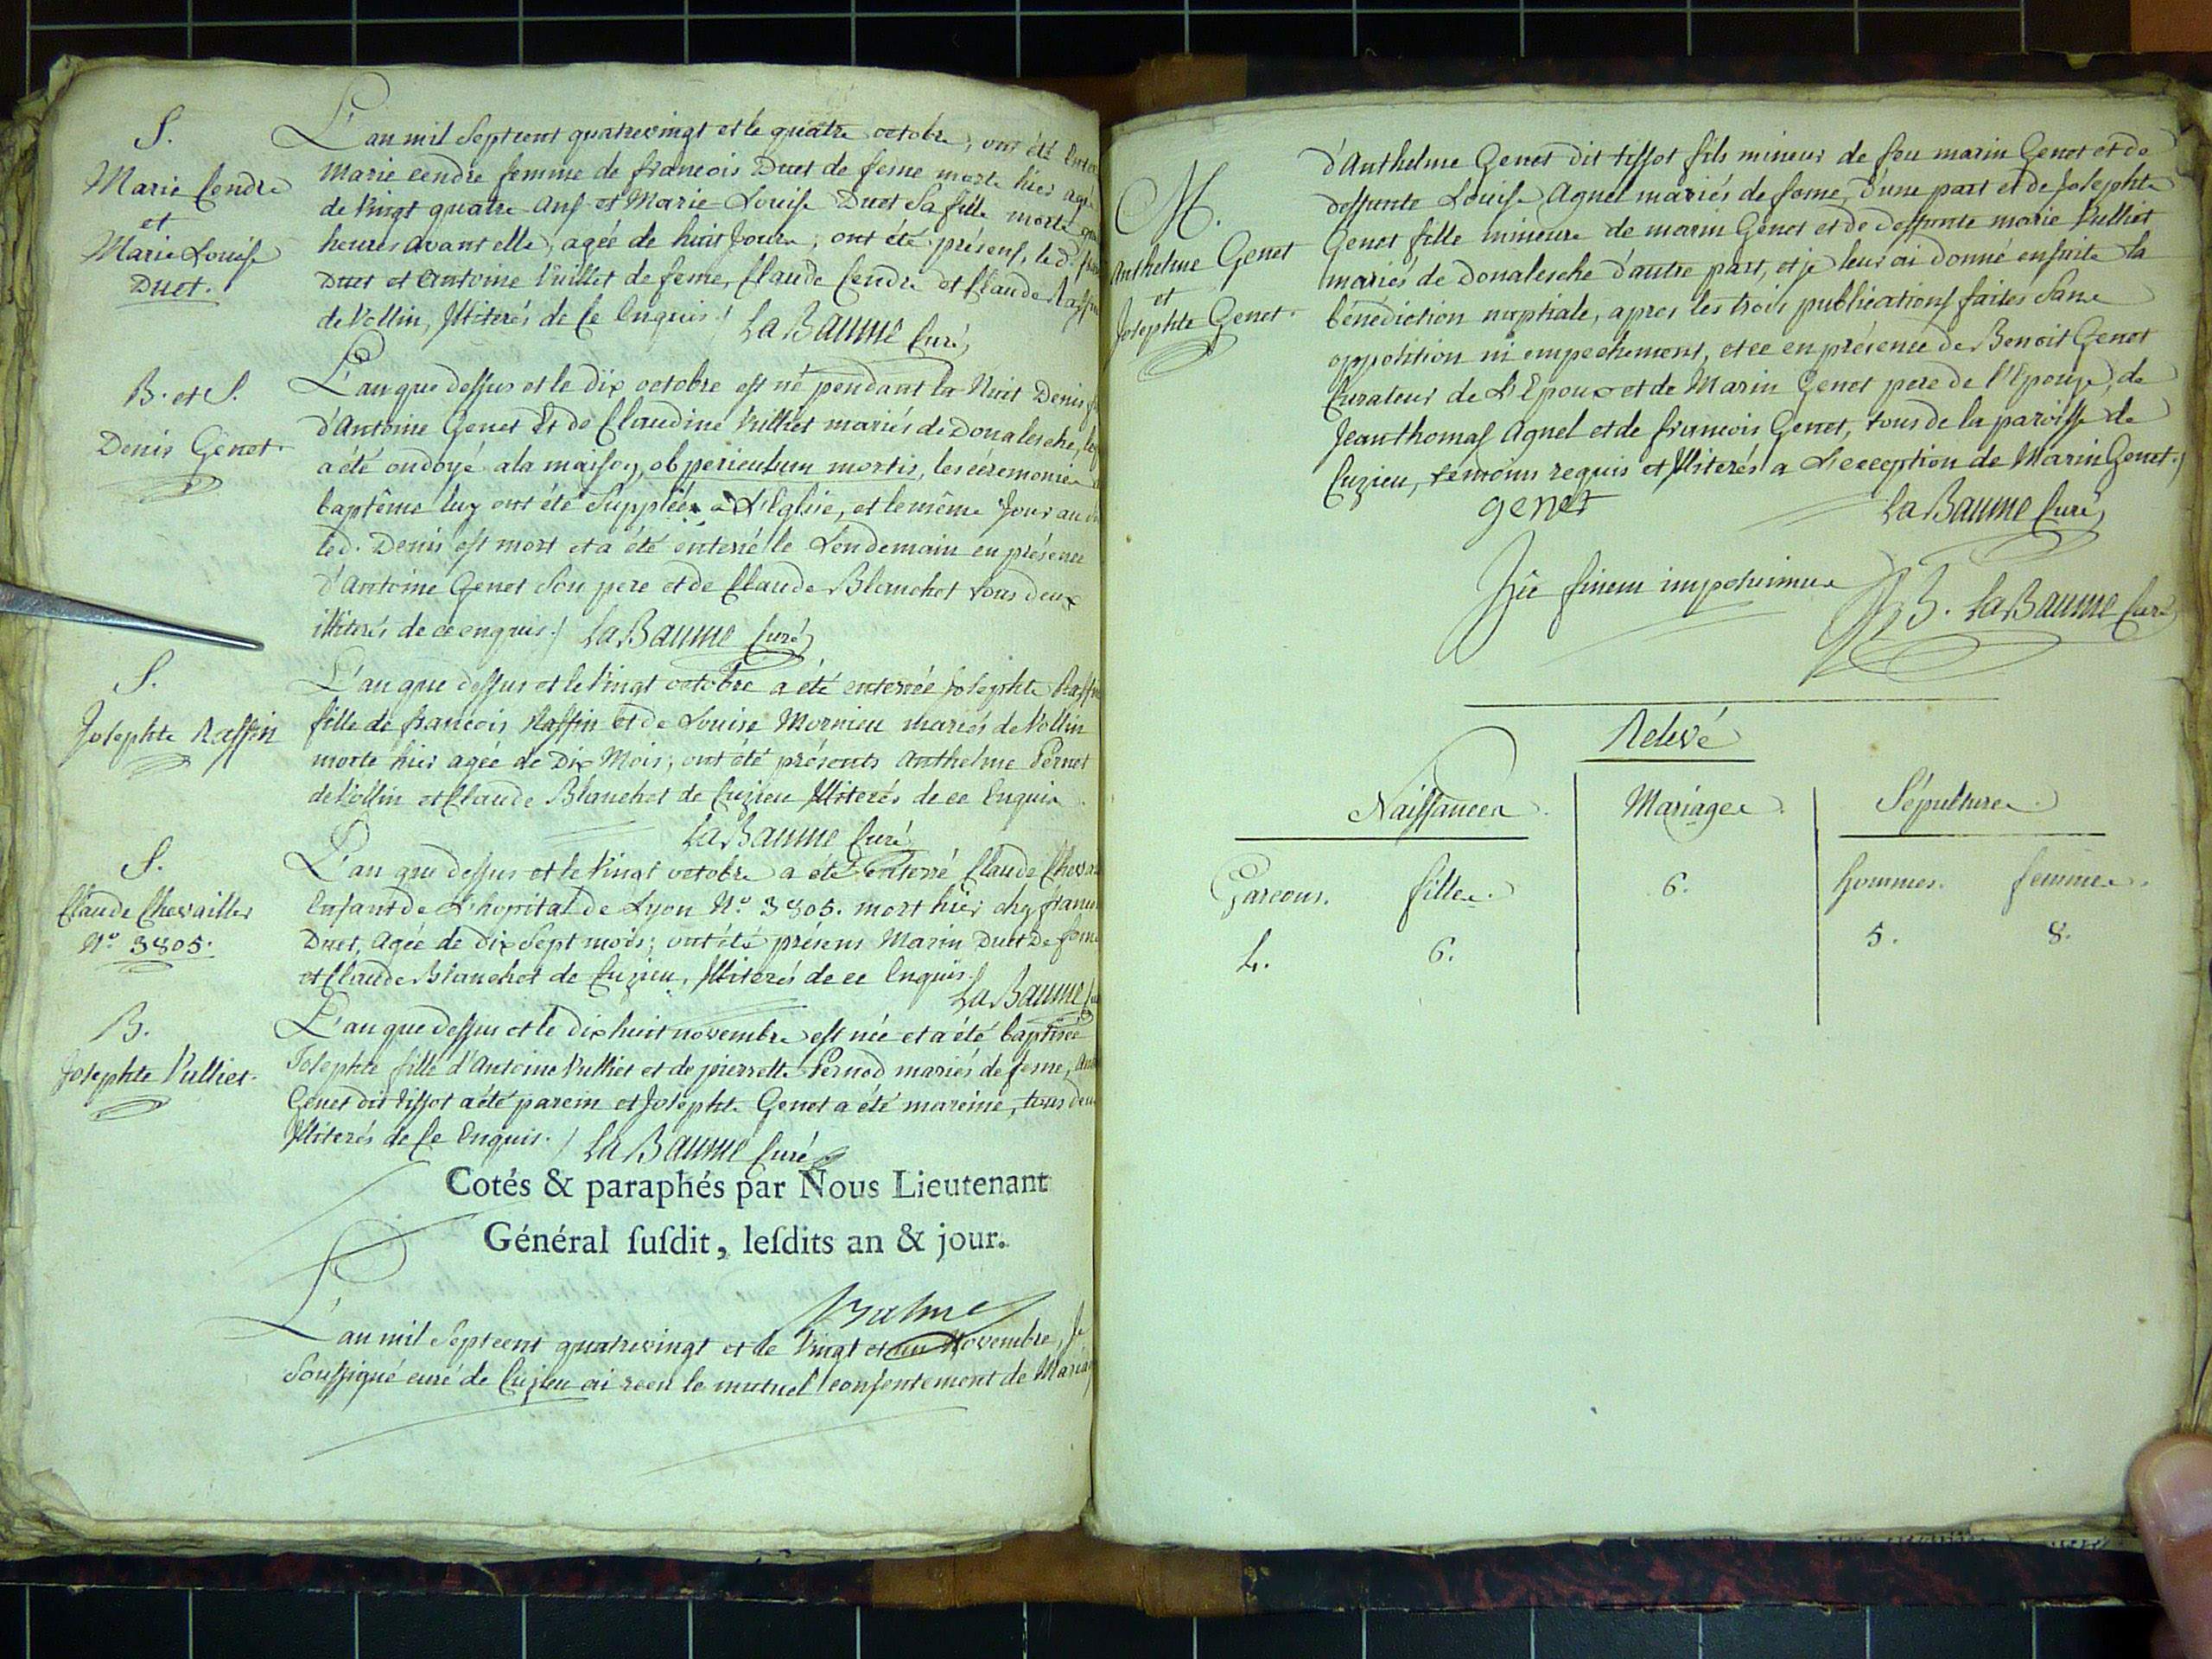 S.
Marie Cendre
et
Marie Louise
Duet.
L'an mil Septcent quatrevingt et le quatre octobre, ont été
Marie cendre femme de francois Duet de feme morte hier agée
de Vingt quatre ans et Marie Louise Duet Sa fille morte
heures avant elle, agée de huit Jours, ont été présens, le d.
Duet et Antoine Vulliet de feme, Claude Cendre et Claude Raffin
de Vollin, Illiterés de Ce Enquis./ La Baume Curé
B. et S.
Denis Genet
L'an que dessus et le dix octobre est né pendant la Nuit Denis
d'Antoine Genet Et de Claudine Vulliet mariés de Donalesche,
a été ondoyé a la maison, ob periculum mortis, les céremonies
baptême luy ont été Suppléés a L'Eglise, et le même Jour au
led. Denis est mort et a été enterré le Lendemain en présence
d'Antoine Genet Son pere et de Claude Blanchet tous deux
illiterés de ce enquis./ La Baume Curé
S.
Josephte Raffin
L'an que dessus et le Vingt octobre a été enterrée Josephte Raffin
fille de francois Raffin et de Louise Mornieu mariés de Vollin
morte hier agée de Dix Mois; ont été présents Anthelme Pernet
de Vollin et Claude Blanchet de Cuzieu Illiterés de ce Enquis
La Baume Curé
S.
Claude Chevallier
N.º 3805.
L'an que dessus et le Vingt octobre a été enterré Claude
Enfant de L'hopital de Lyon N.º 3805. mort hier chez
Duet, Agée de dix Sept mois; ont été présens Marin Duet De feme
et Claude Blanchet de Cuzieu, Illiterés de ce Enquis.
La Baume
B.
Josephte Vulliet.
L'an que dessus et le dix huit novembre est née et a été baptisée
Josephte fille d'Antoine Vulliet et de pierrette Pernod mariés de feme,
Genet dit tissot a été parein et Josephte Genet a été mareine, tous deux
Illiterés de Ce Enquis./ La Baume Curé
Cotés & paraphés par Nous Lieutenant
Général ſuſdit, leſdits an & jour.
L'an mil Septcent quatrevingt et le Vingt et un Novembre, Je
Soussigné curé de Cuzieu ai reçu le mutuel consentement de Mariage
M.
Anthelme Genet
et
Josephte Genet.
d'Anthelme Genet dit tissot fils mineur de feu marin Genet et de
deffunte Louise Agnel mariés de feme, d'une part et de Josephte
Genet fille mineure de marin Genet et de deffunte marie Vulliet
mariés de Donalesche d'autre part, et je leur ai donné ensuite la
bénédiction nuptiale, apres les trois publications faites Sans
oppotition ni empechement, et ce en présence de Benoit Genet
Curateur de L'Epoux et de Marin Genet pere de l'Epouse, de
Jeanthomas Agnel et de francois Genet, tous de la paroisse de
Cuzieu, temoins requis et Illiterés a L'exception de Marin Genet./
genet
La Baume Curé
Hic finem imposuimus
La Baume Curé
Relevé
Naissances.
Mariages.
Sépultures.
Garcons.
filles.
6.
hommes.
femmes.
4.
6.
5.
8.